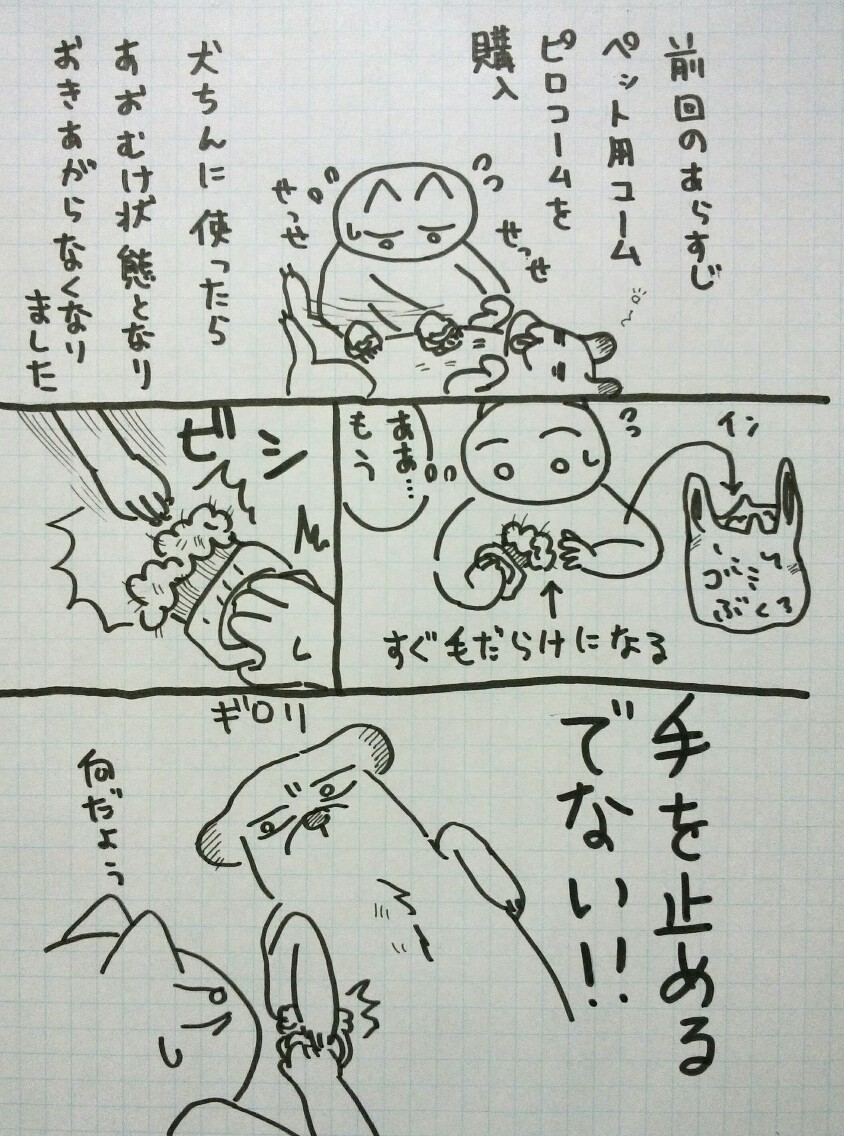 前回のあらすじ
ペット用コーム
ピロコームを
購入
せっせ
せっせ
犬ちんに使ったら
あおむけ状態となり
おきあがらなくなり
ました
イン
ゴミ
ぶくろ
すぐ毛だらけになる
ああ…
もう
ビシ
手を止める
でない!!
ギロリ
何だよぅ